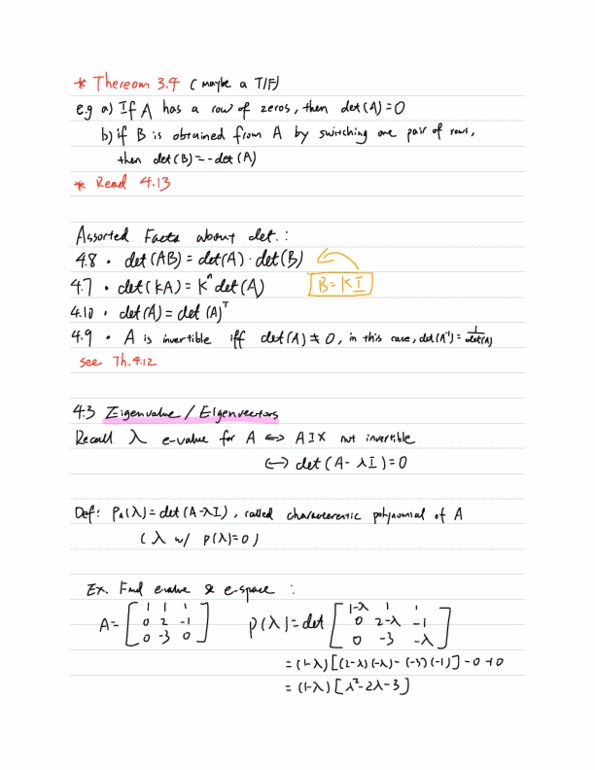 * Thereom 3.4 (maybe a T/F)
e.g a) If A has a row of zeros, then det(A)=0
b) if B is obtained from A by switching one pair of rows,
then det(B)=-det(A)
* Read 4.13
Assorted Facts about det.:
4.8 • det(AB)=det(A)·det(B)
B=KI
4.7 • det(kA)=Kⁿdet(A)
4.10 • det(A)=det(A)ᵀ
4.9 • A is invertible iff det(A)≠0, in this case, det(A⁻¹)=1/det(A)
see Th.4.12
4.3 Eigenvalue / Eigenvectors
Recall λ e-value for A ⟺ AIX not invertible
⟺ det(A-λI)=0
Def: Pₐ(λ)=det(A-λI), called characterentic polynomial of A
(λ w/ P(λ)=0)
Ex. Find evalue & e-space :
A=[1 1 1
0 2 -1
0 -3 0]
P(λ)=det[1-λ 1 1
0 2-λ -1
0 -3 -λ]
=(1-λ)[(2-λ)(-λ)-(-3)(-1)]-0+0
=(1-λ)[λ²-2λ-3]